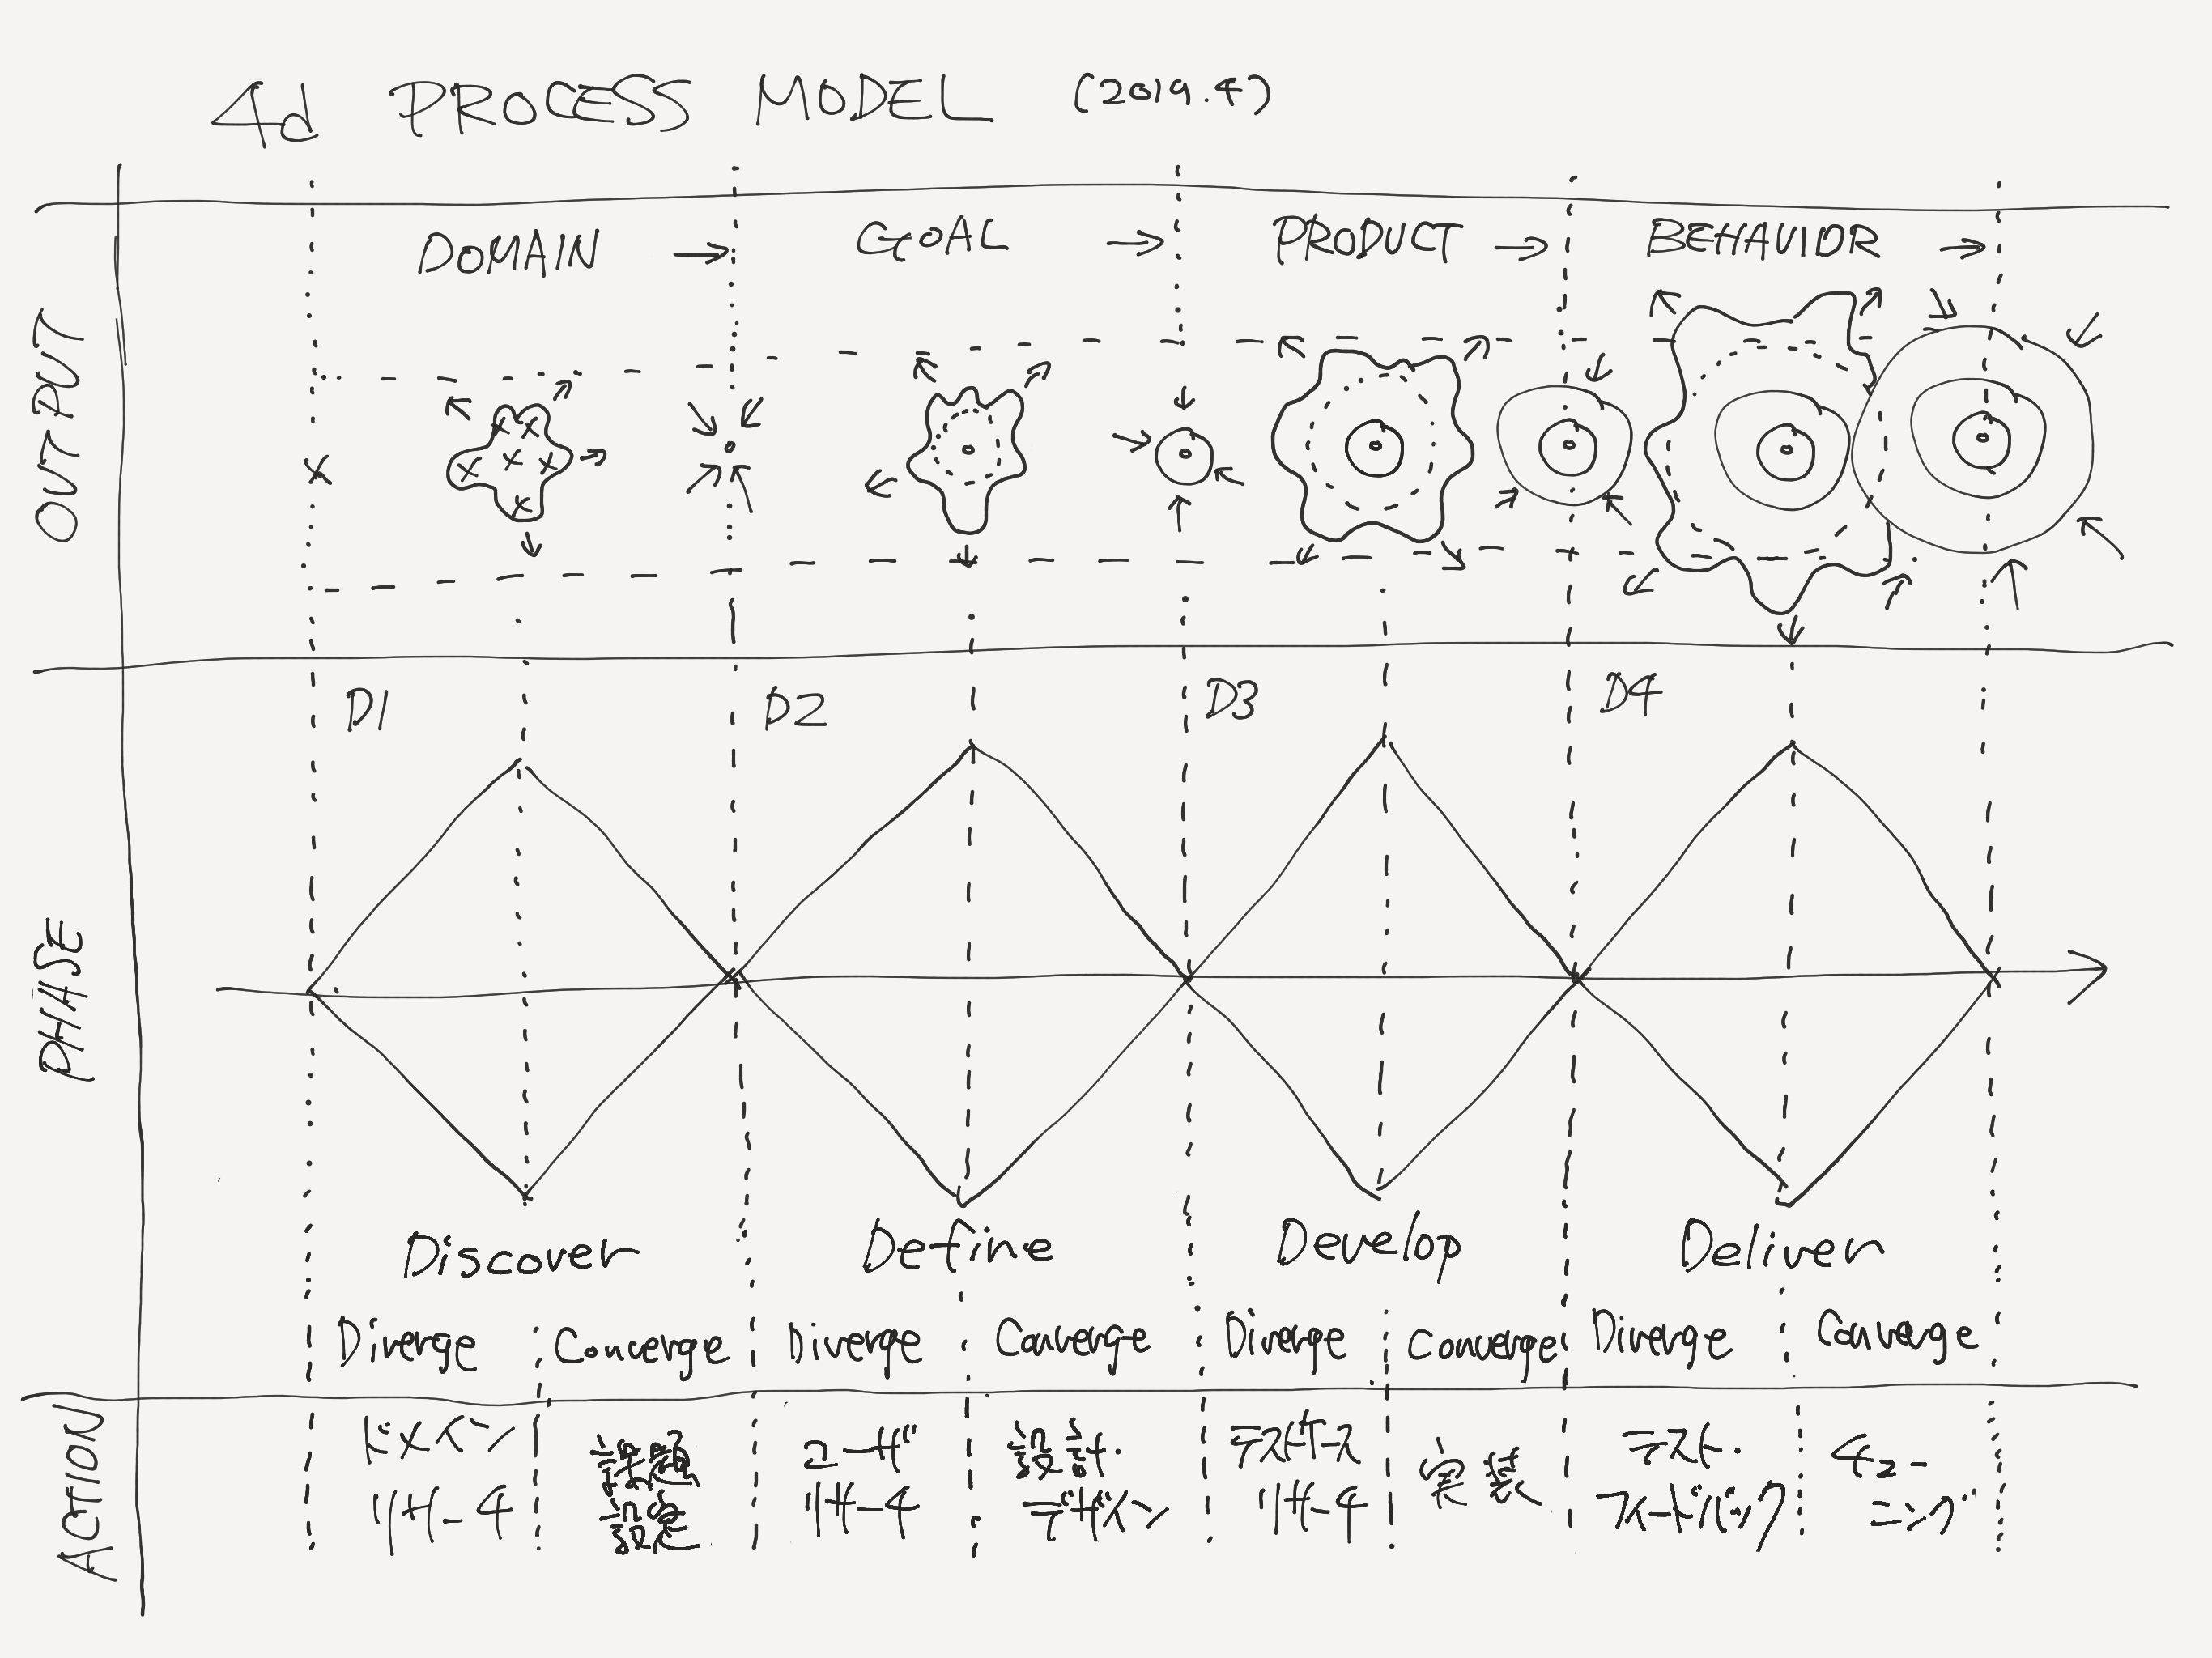 4d PROCESS MODEL (2019.4)
OUTPUT
DOMAIN → GOAL → PRODUCT → BEHAVIOR →
PHASE
D1 D2 D3 D4
Discover Define Develop Deliver
Diverge Converge Diverge Converge Diverge Converge Diverge Converge
ACTION
ドメイン
リサーチ
課題
設定
ユーザ
リサーチ
設計・
デザイン
テストケース
リサーチ
実装
テスト・
フィードバック
チュー
ニング